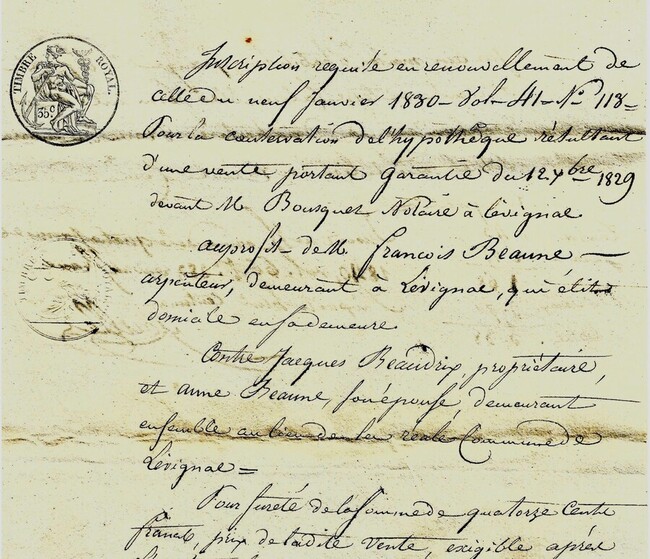 TIMBRE ROYAL.
35c
Inscription requise en renouvellement de
celle du neuf Janvier 1830 - Vol. 41 - No. 118 -
Pour la conservation de l'hypothèque résultant
d'une vente portant garantie du 12 xbre 1829
devant M. Bousquet Notaire à Lévignac
au profit de M. François Beaune -
arpenteur, demeurant à Lévignac, qui élit
domicile en sa demeure.
Contre Jacques Beaudrix, propriétaire,
et anne Beaune, son épouse, demeurant
ensemble au lieu de la Commune de
Lévignac =
Pour sureté de la somme de quatorze Cents
francs, prix de ladite vente, exigible après